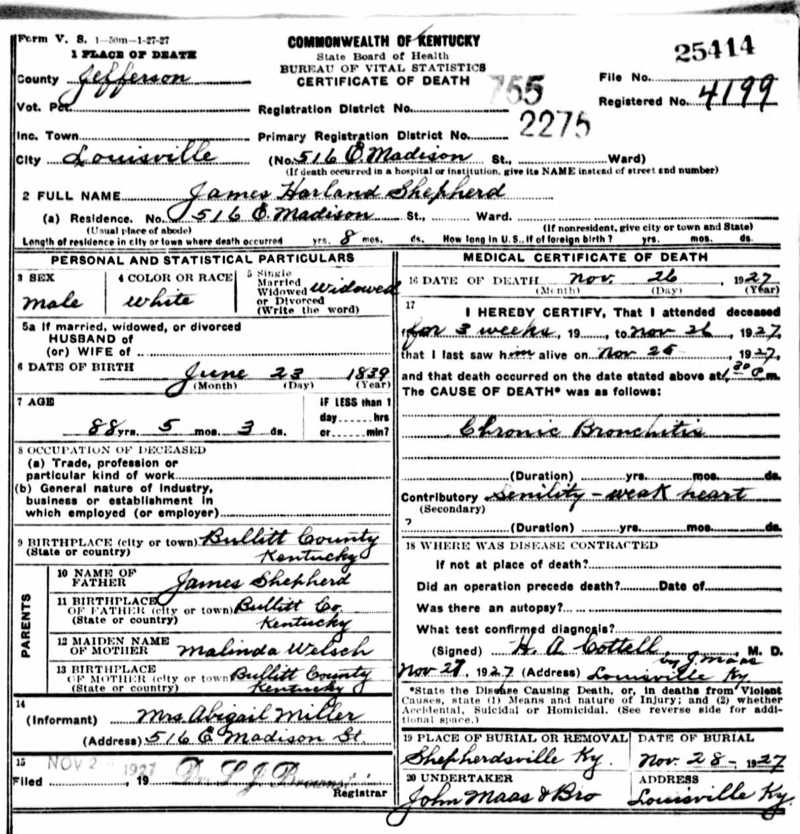 Form V. S. 1-50m-1-27-27
COMMONWEALTH OF KENTUCKY
State Board of Health
BUREAU OF VITAL STATISTICS
CERTIFICATE OF DEATH
25414
1 PLACE OF DEATH
County Jefferson
File No.
Vot. Pct.
Registration District No. 755
Registered No. 4199
Inc. Town
Primary Registration District No. 2275
City Louisville (No. 516 E. Madison St., Ward)
(If death occurred in a hospital or institution, give its NAME instead of street and number)
2 FULL NAME James Harland Shepherd
(a) Residence. No. 516 E. Madison St., Ward.
(Usual place of abode) (If nonresident, give city or town and State)
Length of residence in city or town where death occurred yrs. 8 mos. ds. How long in U.S., if of foreign birth? yrs. mos. ds.
PERSONAL AND STATISTICAL PARTICULARS
3 SEX
Male
4 COLOR OR RACE
White
5 Single
Married
Widowed
or Divorced
(Write the word)
Widowed
5a If married, widowed, or divorced
HUSBAND of
(or) WIFE of
6 DATE OF BIRTH
June 23 1839
(Month) (Day) (Year)
7 AGE
88 yrs. 5 mos. 3 ds.
IF LESS than 1
day ...... hrs
or ...... min?
8 OCCUPATION OF DECEASED
(a) Trade, profession or
particular kind of work
(b) General nature of industry,
business or establishment in
which employed (or employer)
9 BIRTHPLACE (city or town) Bullitt County
(State or country) Kentucky
PARENTS
10 NAME OF
FATHER James Shepherd
11 BIRTHPLACE
OF FATHER (city or town) Bullitt Co.
(State or country) Kentucky
12 MAIDEN NAME
OF MOTHER Malinda Welsch
13 BIRTHPLACE
OF MOTHER (city or town) Bullitt County
(State or country) Kentucky
14
(Informant) Mrs. Abigail Miller
(Address) 516 E Madison St.
15
Filed NOV 2 1927, 19 Dr. L J Registrar
MEDICAL CERTIFICATE OF DEATH
16 DATE OF DEATH Nov. 26, 1927
(Month) (Day) (Year)
17
I HEREBY CERTIFY, That I attended deceased
for 3 weeks, 19, to Nov 26, 1927,
that I last saw him alive on Nov 25, 1927,
and that death occurred on the date stated above at 1,30 P.m.
The CAUSE OF DEATH* was as follows:
Chronic Bronchitis
(Duration) yrs. mos. ds.
Contributory Senility - weak heart
(Secondary)
? (Duration) yrs. mos. ds.
18 WHERE WAS DISEASE CONTRACTED
If not at place of death?
Did an operation precede death? Date of
Was there an autopsy?
What test confirmed diagnosis?
(Signed) H. A Cottell, M. D.
by J. Maas
Nov 27, 1927 (Address) Louisville Ky
*State the Disease Causing Death, or, in deaths from Violent
Causes, state (1) Means and nature of Injury; and (2) whether
Accidental, Suicidal or Homicidal. (See reverse side for addi-
tional space.)
19 PLACE OF BURIAL OR REMOVAL
Shepherdsville Ky.
DATE OF BURIAL
Nov. 28 - 1927
20 UNDERTAKER
John Maas & Bro
ADDRESS
Louisville Ky.